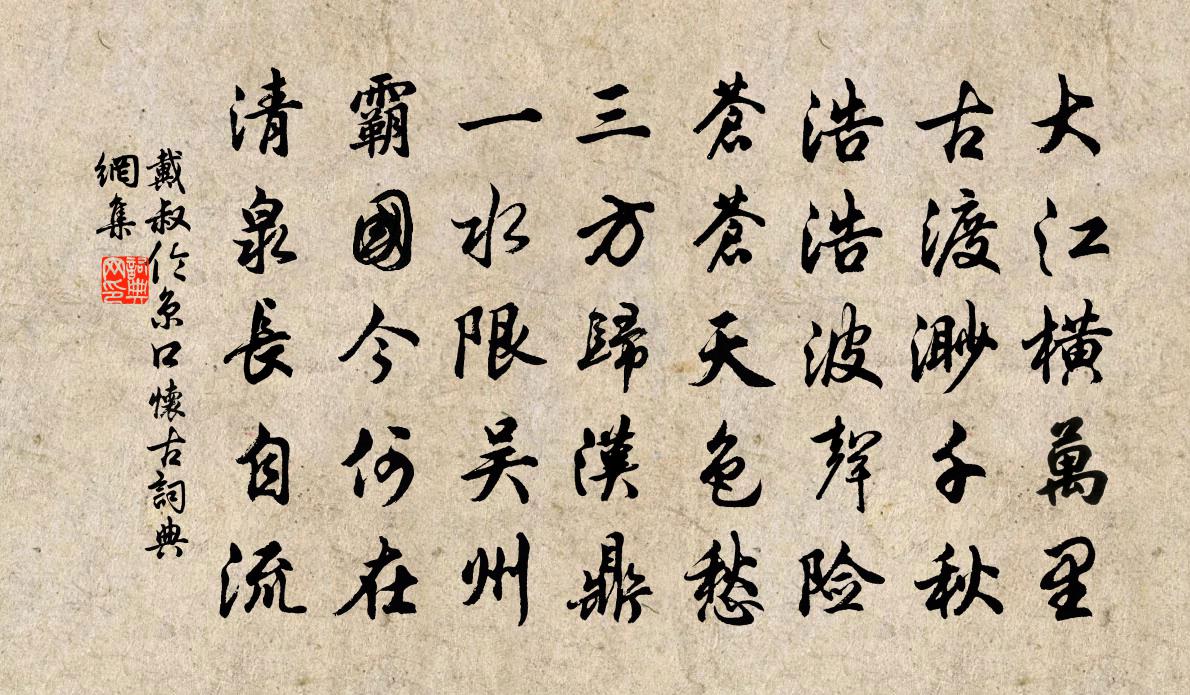 大江橫萬里
古渡渺千秋
浩浩波聲險
蒼蒼天色愁
三方歸漢鼎
一水限吴州
霸國今何在
清泉長自流
戴叔伦京口懷古詞典
網集
詞典
网印